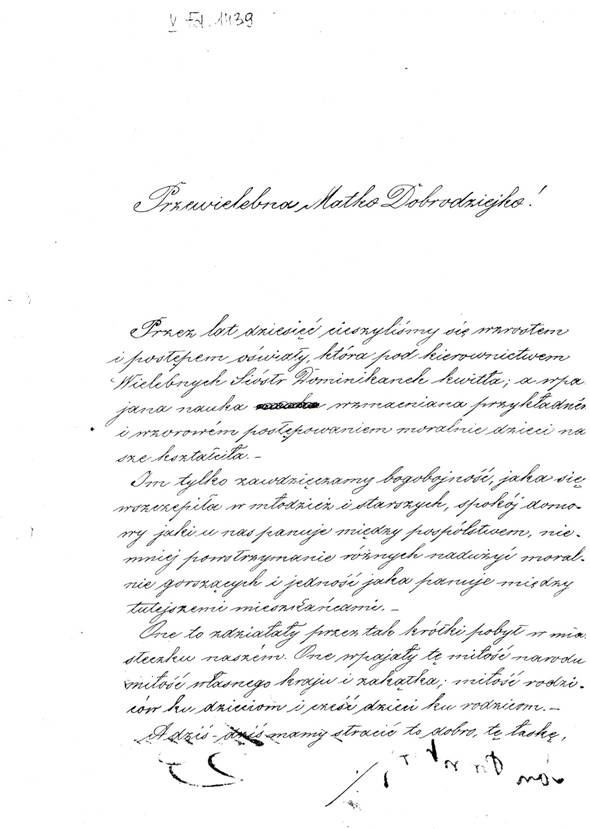 V Fol. 1439
Przewielebna Matko Dobrodziejko!
Przez lat dziesięć cieszyliśmy się wzrostem
i postępem oświaty, która pod kierownictwem
Wielebnych Sióstr Dominikanek kwitła; a wpa
jana nauka wzmacniana przykładném
i wzorowém postępowaniem moralnie dzieci na
sze kształciła. –
Im tylko zawdzięczamy bogobojność, jaka się
wszczepiła w młodzież i starszych, spokój domo-
wy jaki u nas panuje między pospólstwem, nie-
mniej powstrzymanie różnych nadużyć moral-
nie gorszących i jedność jaka panuje między
tutejszemi mieszkańcami. –
One to zdziałały przez tak krótki pobyt w mia
steczku naszém. One wpajały tę miłość narodu
miłość własnego kraju i zakątka; miłość rodzi-
ców ku dzieciom i cześć dzieci ku rodzicom. –
A dziś - dziś mamy stracić to dobro, tę łaskę,